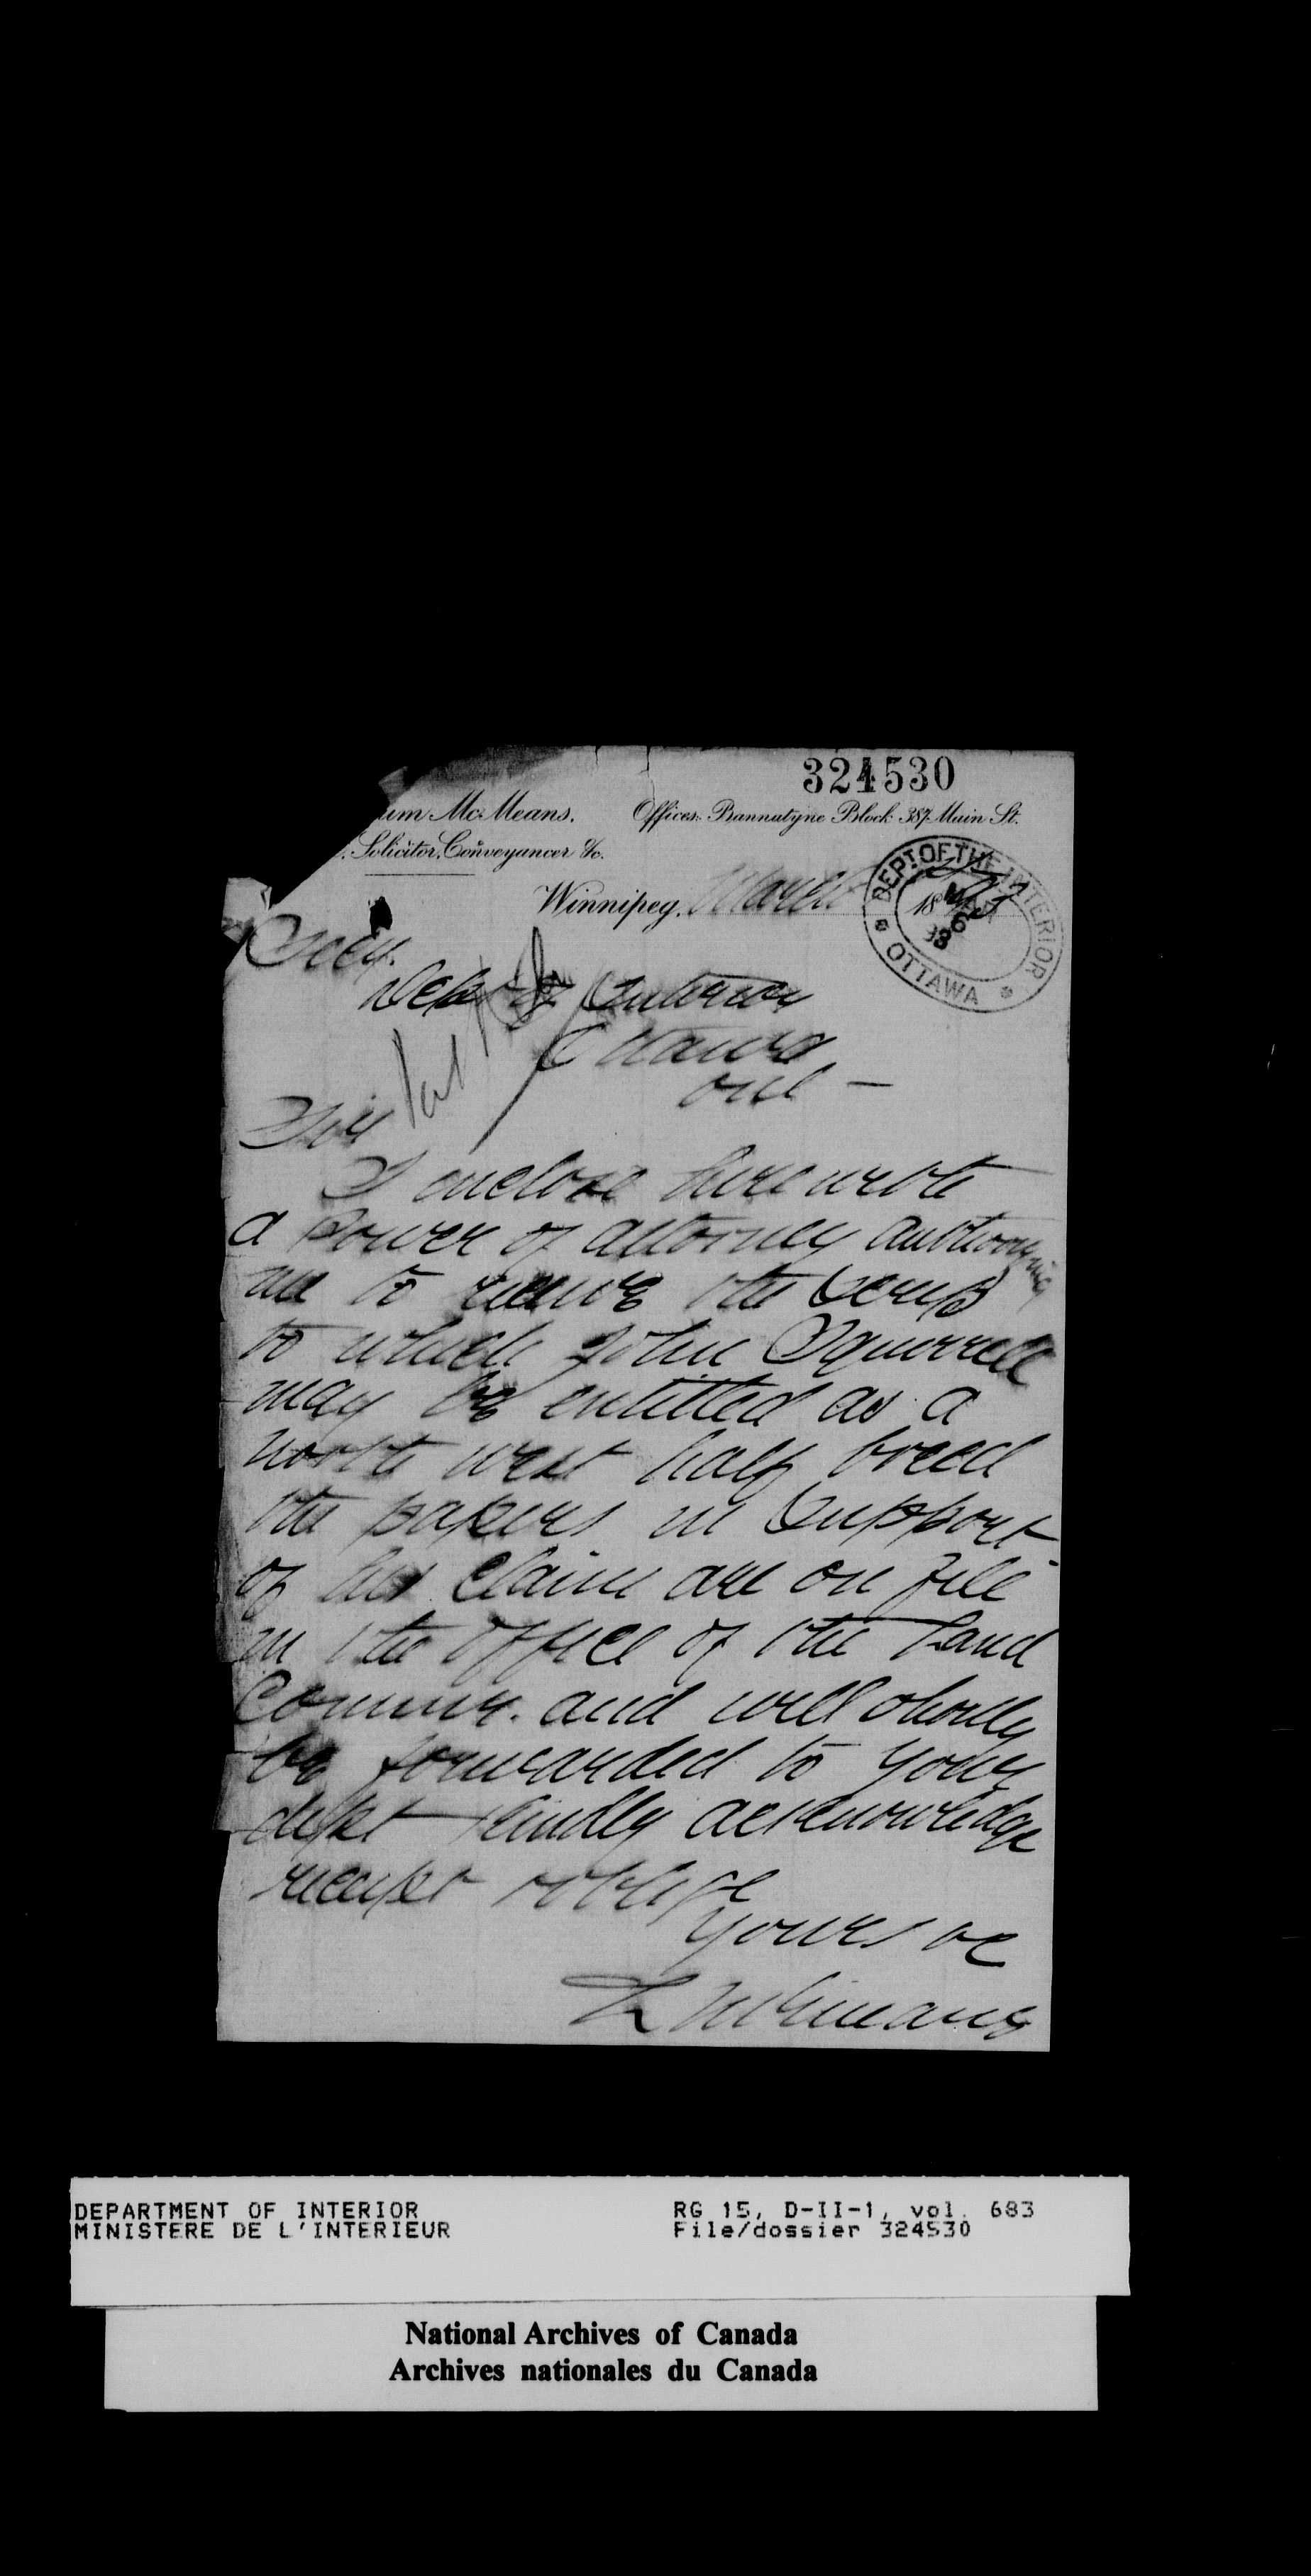 324530
um McMeans. Offices: Bannatyne Block 387 Main St.
Solicitor, Conveyancer &c.
Winnipeg, March
DEPT. OF THE INTERIOR
OTTAWA
Secy.
Dept of Interior
Ottawa
Ont —
Sir
I enclose herewith
a power of attorney authorizing
me to receive the Scrip
to which John Squirrell
may be entitled as a
north west half breed
the papers in support
of his claim are on file
in the office of the Land
Commr. and will shortly
be forwarded to your
dept Kindly acknowledge
receipt & oblige
Yours &c
L McMeans
DEPARTMENT OF INTERIOR RG 15, D-II-1, vol. 683
MINISTERE DE L'INTERIEUR File/dossier 324530
National Archives of Canada
Archives nationales du Canada